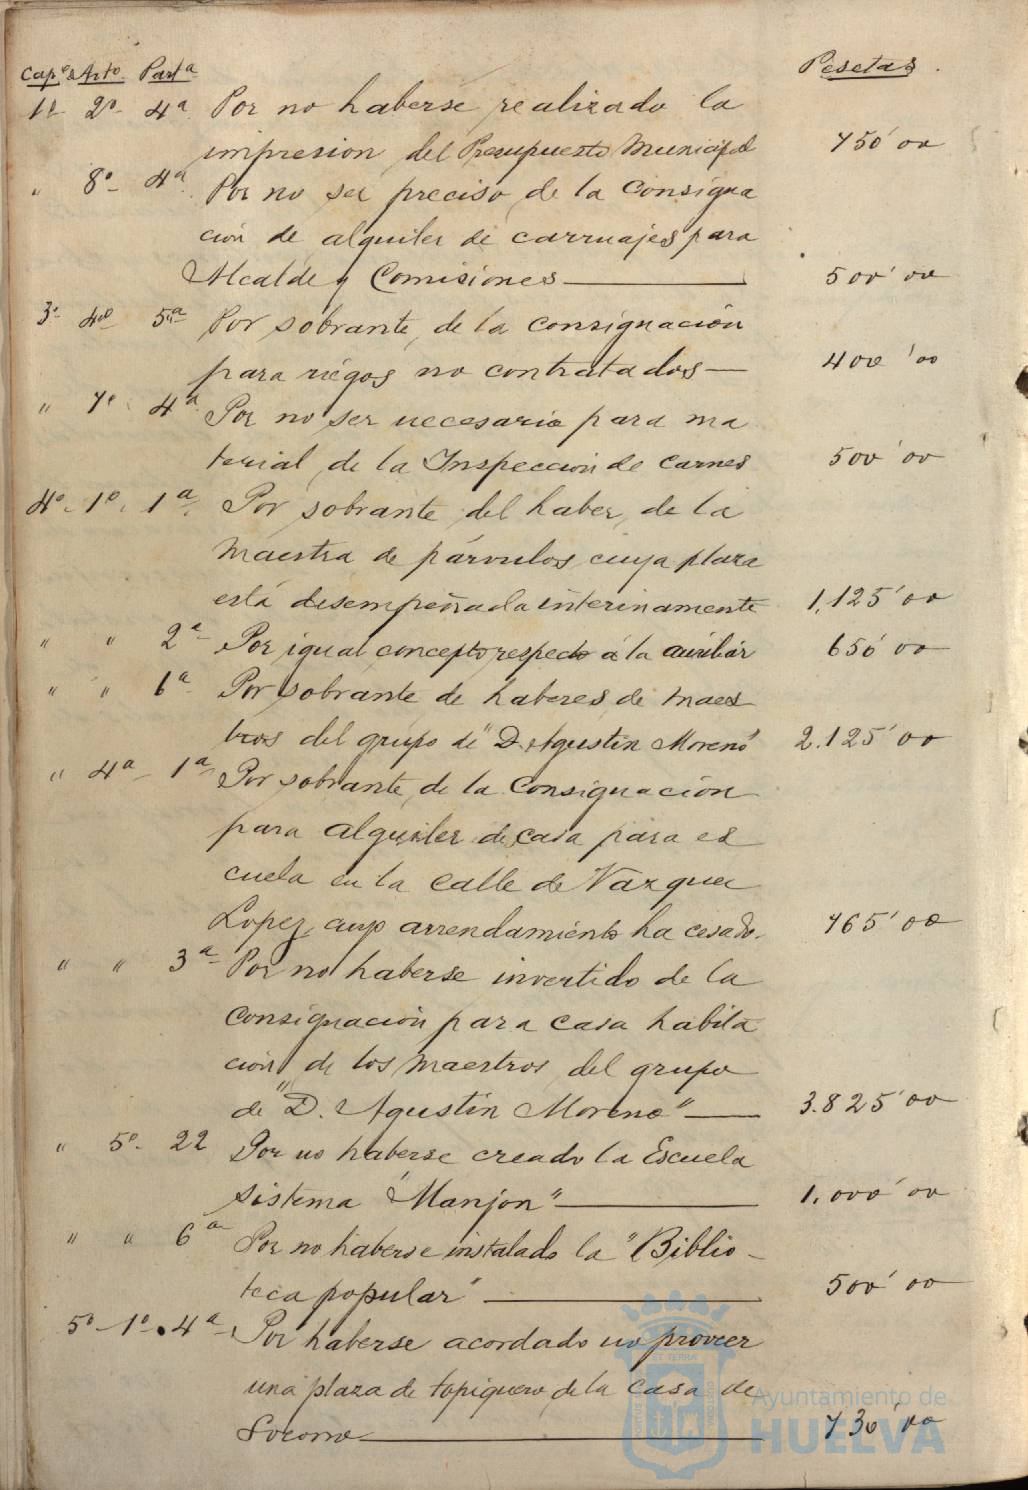 Cap.º Art.º Part.ª Pesetas
1º 2º 4ª Por no haberse realizado la
impresion del Presupuesto Municipal 750'00
" 8º 4ª Por no ser preciso de la consigna
ción de alquiler de carruajes para
Alcalde y Comisiones 500'00
3º 4º 5ª Por sobrante de la consignación
para riegos no contratados 400'00
" 7º 4ª Por no ser necesario para ma
terial de la Inspección de carnes 500'00
4º 1º 1ª Por sobrante del haber de la
maestra de párvulos cuya plaza
está desempeñada interinamente 1.125'00
" " 2ª Por igual concepto respecto á la auxiliar 650'00
" " 6ª Por sobrante de haberes de maes
tros del grupo de "D. Agustín Moreno" 2.125'00
" 4ª 1ª Por sobrante de la consignación
para alquiler de casa para es
cuela en la calle de Vazquez
Lopez cuyo arrendamiento ha cesado. 765'00
" " 3ª Por no haberse invertido de la
consignación para casa habita
ción de los maestros del grupo
de "D. Agustín Moreno" 3.825'00
" 5º 22 Por no haberse creado la Escuela
sistema "Manjon" 1.000'00
" " 6ª Por no haberse instalado la "Biblio-
teca popular" 500'00
5º 1º 4ª Por haberse acordado no proveer
una plaza de topiquero de la casa de
Socorro 730'00
Ayuntamiento de
HUELVA